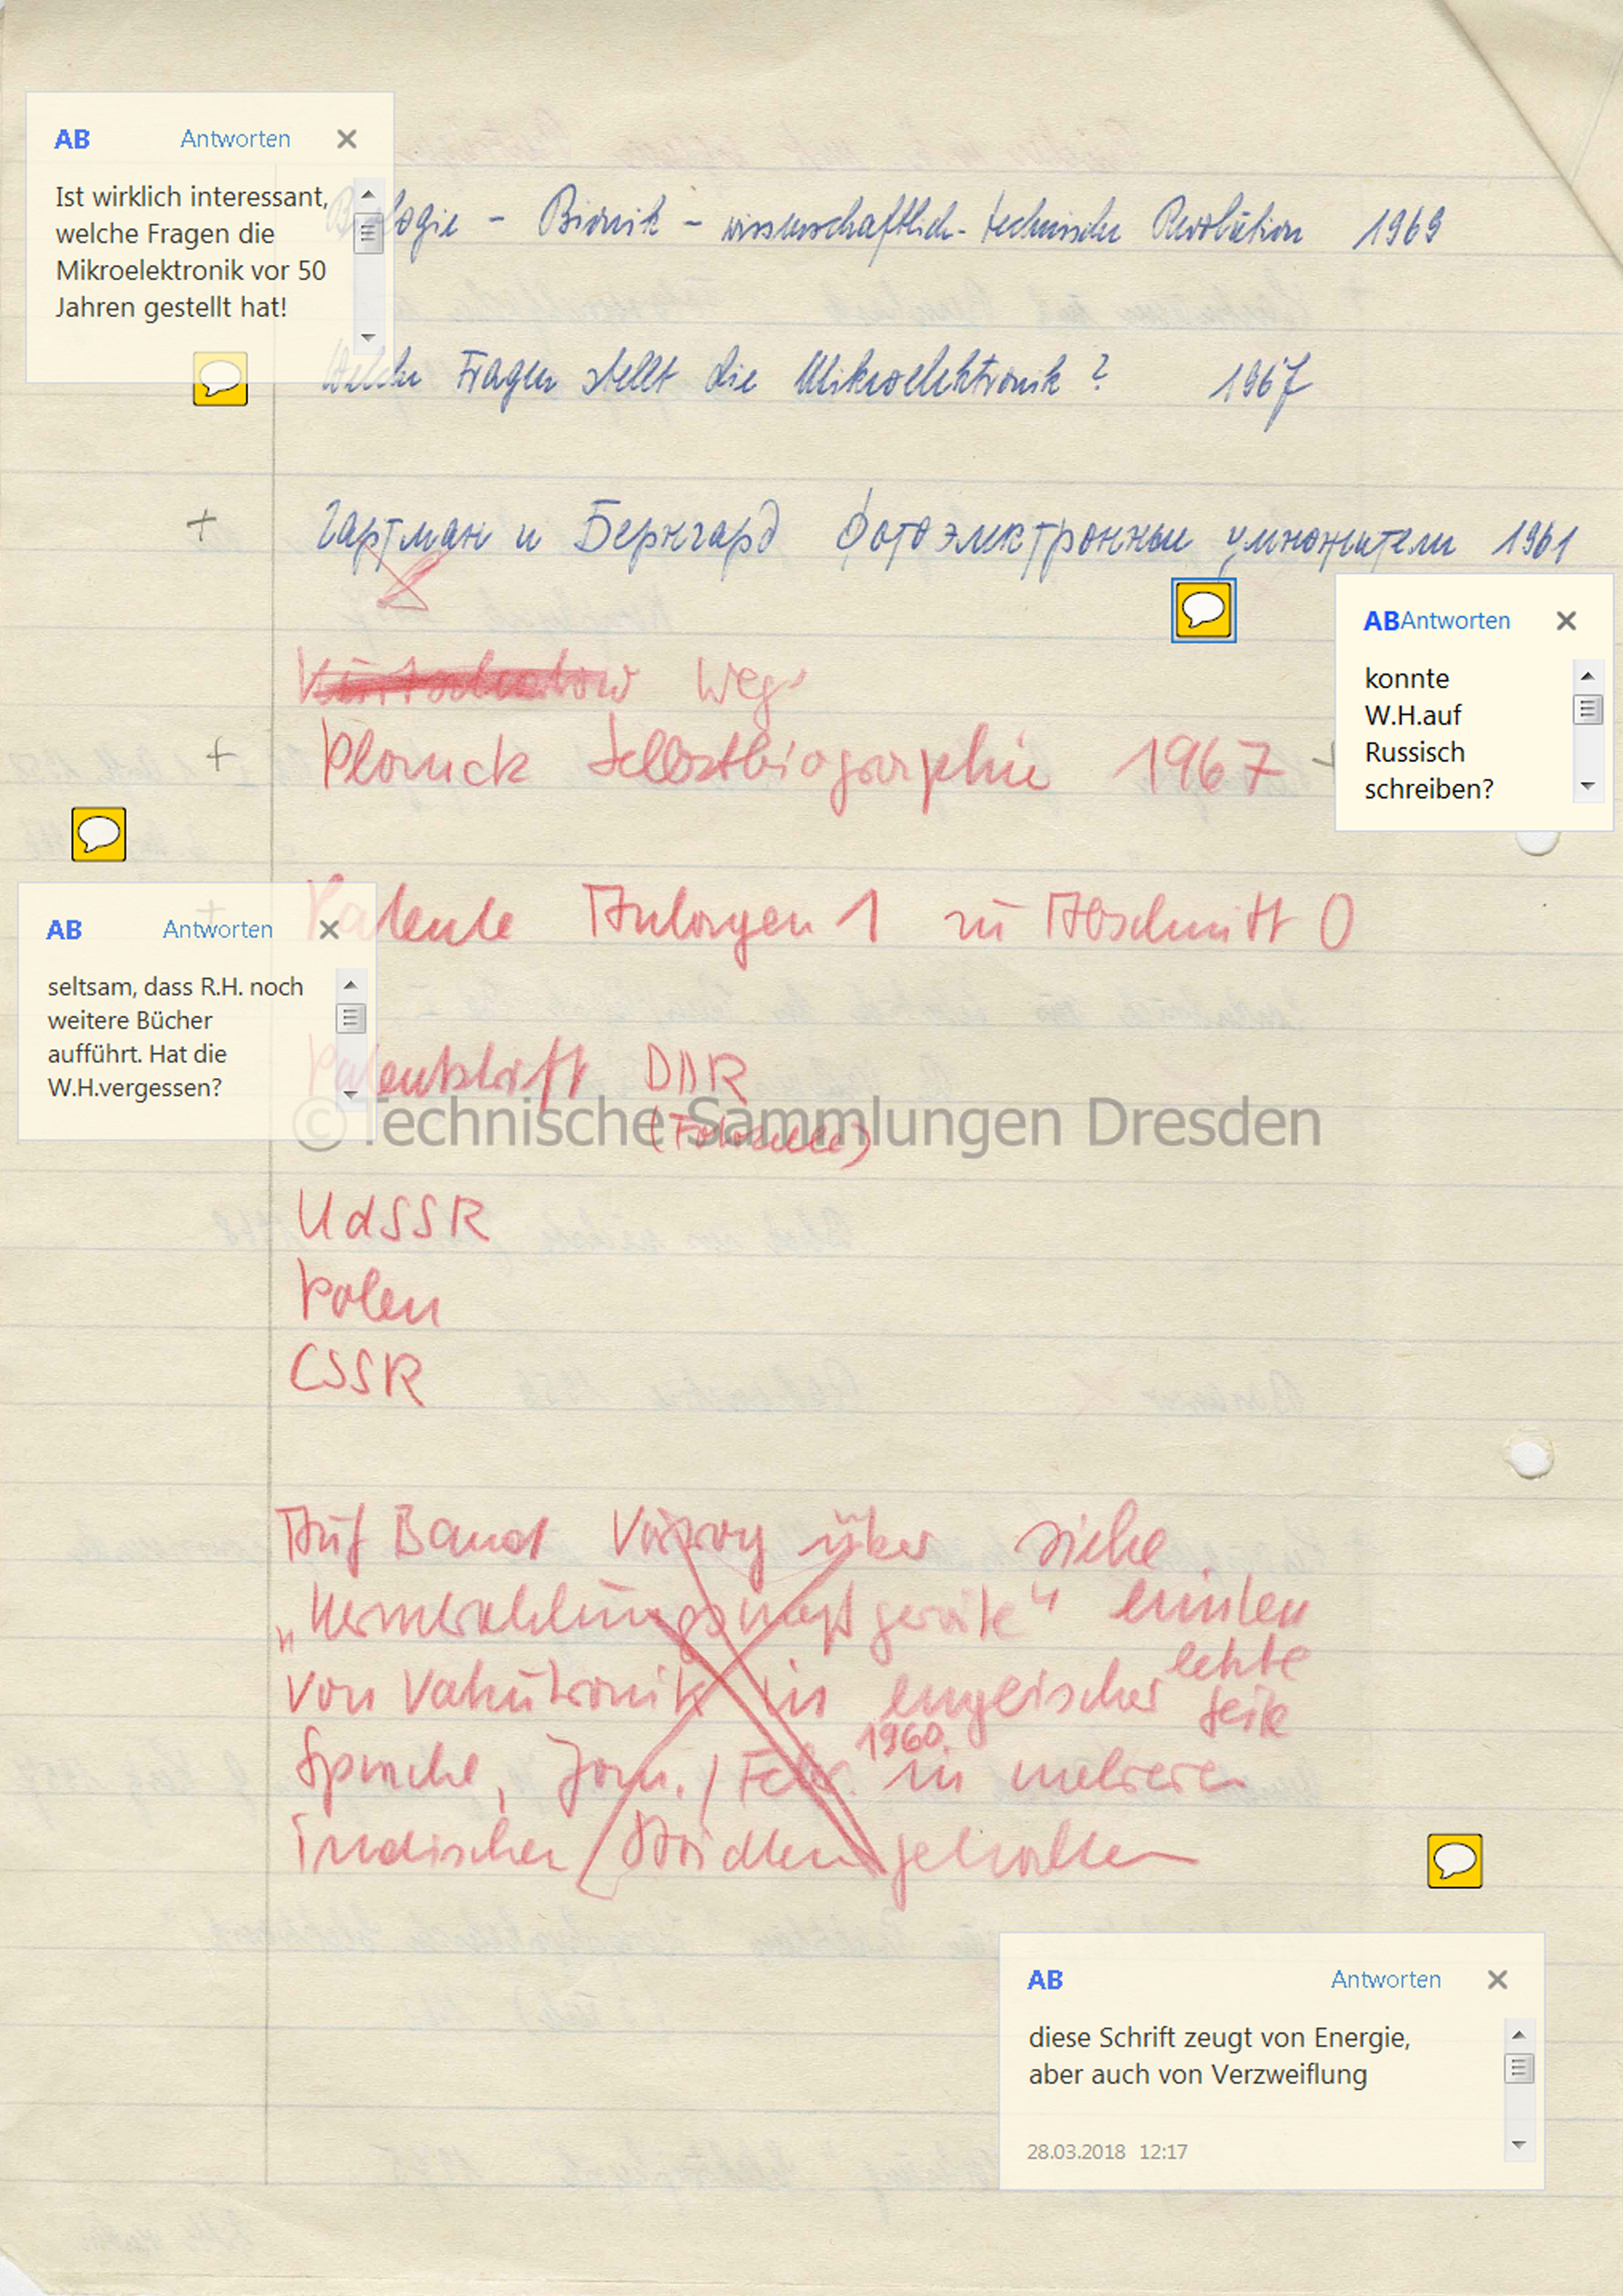 AB Antworten
Ist wirklich interessant,
welche Fragen die
Mikroelektronik vor 50
Jahren gestellt hat!
Biologie - Bionik - wissenschaftlich-technische Revolution 1969
Welche Fragen stellt die Mikroelektronik? 1967
+ Гартман и Бернгард Фотоэлектронные умножители 1961
AB Antworten
konnte
W.H.auf
Russisch
schreiben?
weg
+ Planck Selbstbiographie 1967
+ Patente Anlagen 1 zu Abschnitt 0
AB Antworten
seltsam, dass R.H. noch
weitere Bücher
aufführt. Hat die
W.H.vergessen?
Patentschrift DDR
© Technische Sammlungen Dresden
UdSSR
Polen
CSSR
Auf Band Vortrag über siehe
„Kernstrahlungsmeßgeräte“
letzte
von Vakutronik in englischer Seite
1960
Sprache, Jan./Febr. in mehreren
indischen Städten gehalten
AB Antworten
diese Schrift zeugt von Energie,
aber auch von Verzweiflung
28.03.2018 12:17